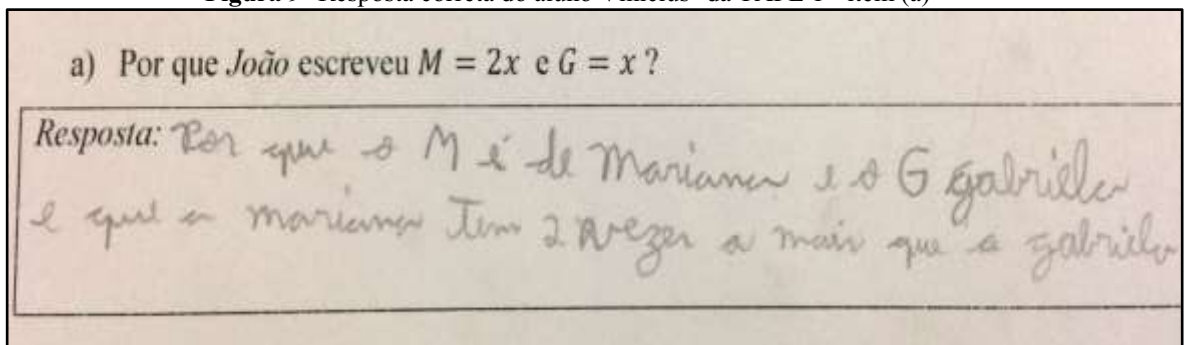 a) Por que João escreveu M = 2x e G = x ?
Resposta: Por que o M é de Mariana e o G gabriela
e que a mariana Tem 2 vezes a mais que a gabriela